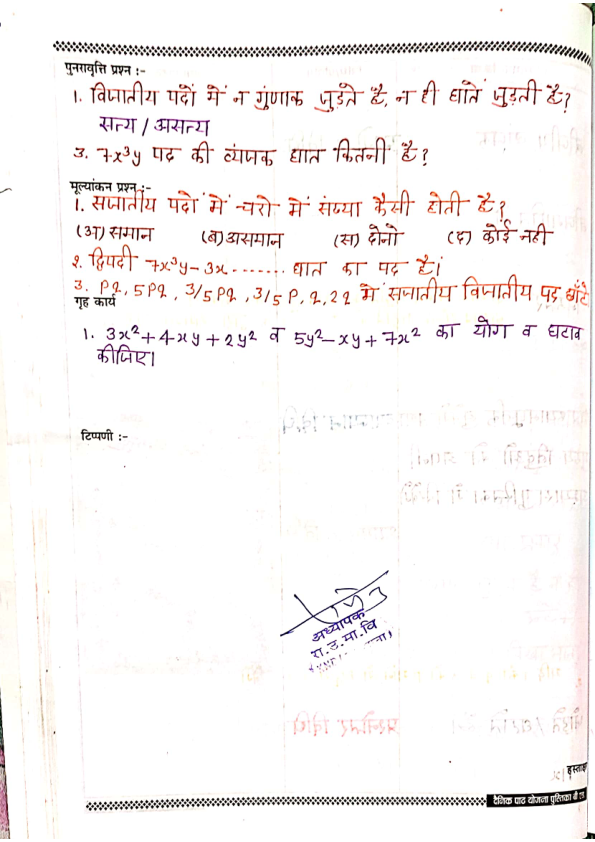 पुनरावृत्ति प्रश्न :-
1. विजातीय पदों में न गुंणाक जुडते है, न ही घातें जुड़ती है?
सत्य / असत्य
3. 7x³y पद की व्यंपक घात कितनी है?
मूल्यांकन प्रश्न :-
1. सजातीय पदों में चरो में संख्या कैसी होती है?
(अ) समान (ब) असमान (स) दोनो (द) कोई नही
२. द्विपदी 7x³y-3x ....... घात का पद है।
3. PQ, 5PQ, 3/5PQ, 3/5 P, 2, 22 में सजातीय विजातीय पद छाँटे
गृह कार्य
1. 3x²+4xy+2y² व 5y²-xy+7x² का योग व घटाव
कीजिए।
टिप्पणी :-
अध्यापक
रा.उ.मा.वि
हस्ताक्ष
दैनिक पाठ योजना पुस्तिका बी